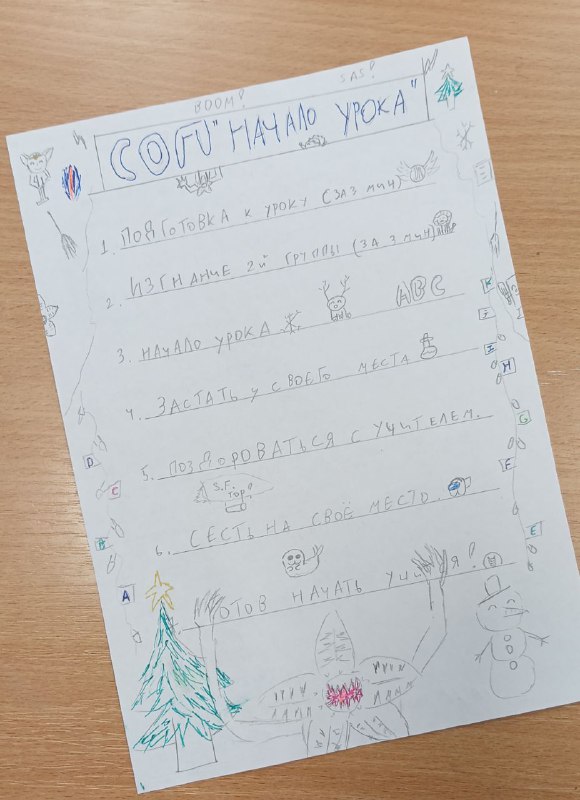 BOOM!
SAS!
СОГИ "НАЧАЛО УРОКА"
1. ПОДГОТОВКА К УРОКУ (ЗА 3 МИН)
2. ИЗГНАНИЕ 2й ГРУППЫ (ЗА 3 МИН)
3. НАЧАЛО УРОКА
ABC
4. ЗАСТАТЬ У СВОЕГО МЕСТА
5. ПОЗДОРОВАТЬСЯ С УЧИТЕЛЕМ.
S.F. TOP!
6. СЕСТЬ НА СВОЁ МЕСТО.
ОТОВ НАЧАТЬ
D
C
B
A
H
G
F
E